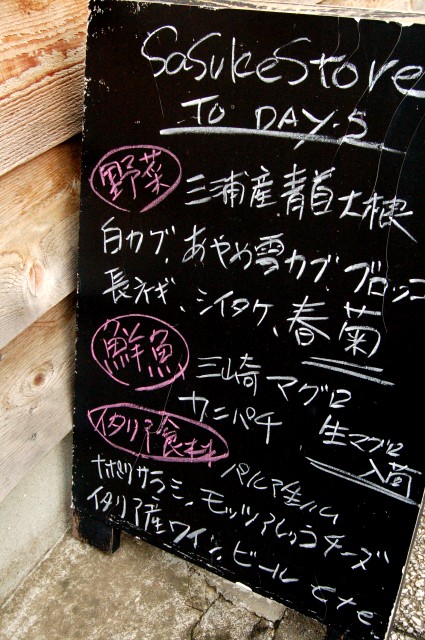 SasukeStore
TO DAY'S
野菜 三浦産青首大根
白カブ、あやめ雪カブ、ブロッコ
長ネギ、シイタケ、春菊
鮮魚 三崎マグロ
カンパチ 生マグロ
入荷
イタリア食材 パルマ生ハム
ナポリサラミ、モッツァレラチーズ
イタリア産ワイン、ビール etc.